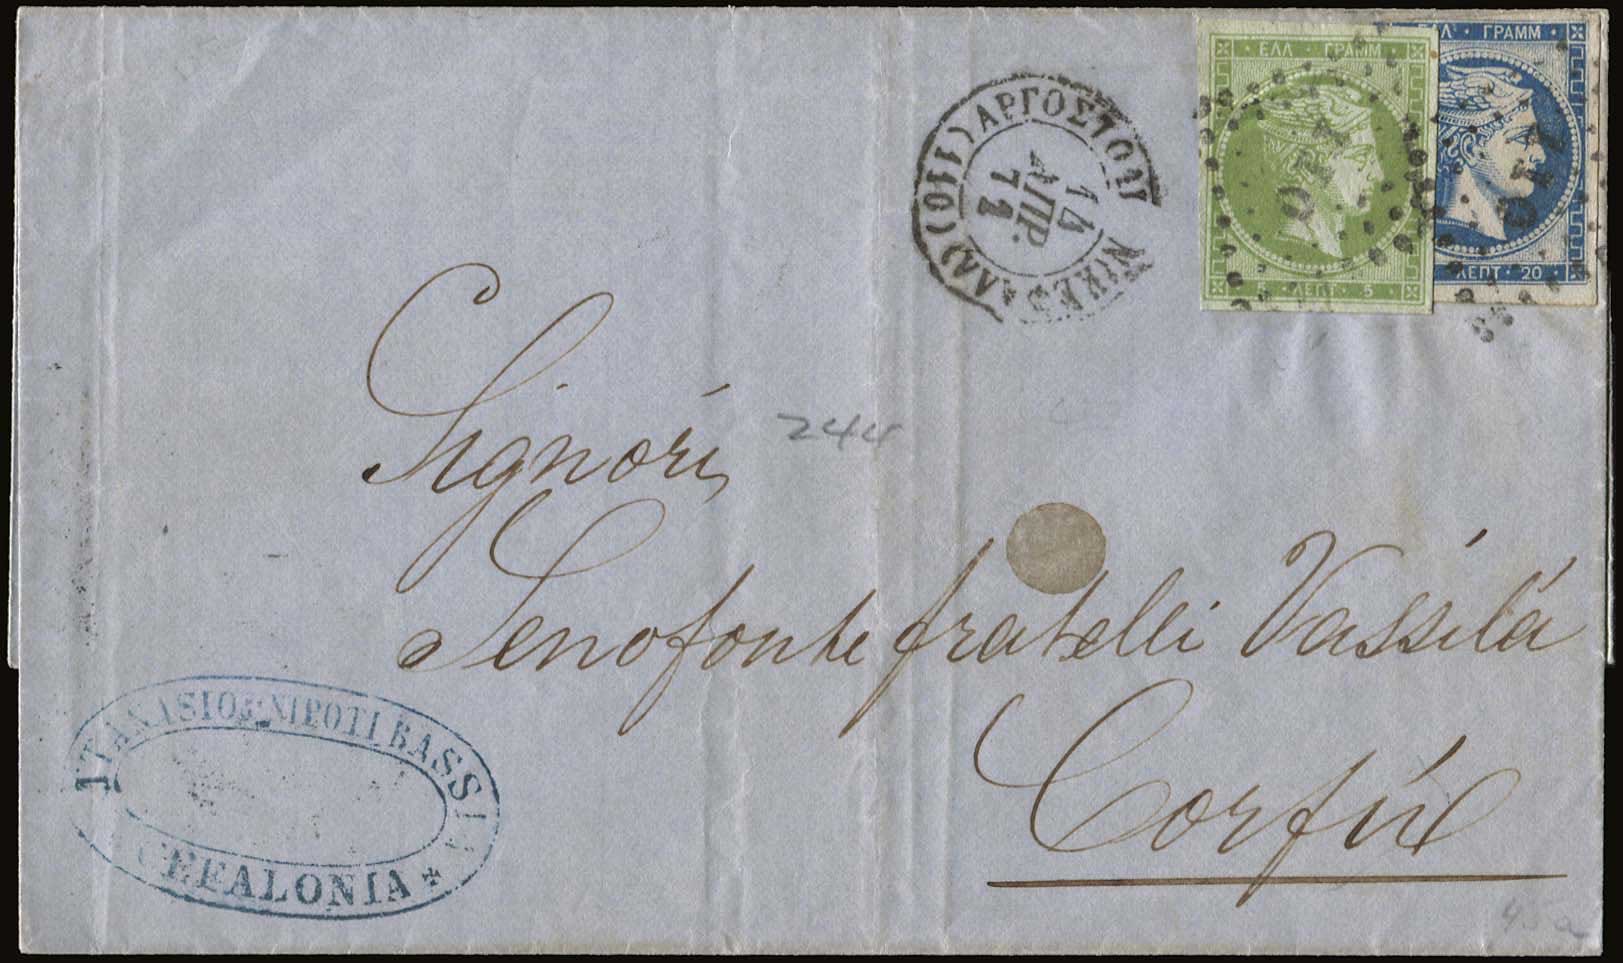 ΕΛΛ · ΓΡΑΜΜ
ΛΕΠΤ · 5
ΕΛΛ · ΓΡΑΜΜ
ΛΕΠΤ · 20
ΑΡΓΟΣΤΟΛΙ
(110)
14
ΑΠΡ.
Signori
244
Senofonte fratelli Vassilá
Corfù
& NIPOTI BASSIA
CEFALONIA
45a